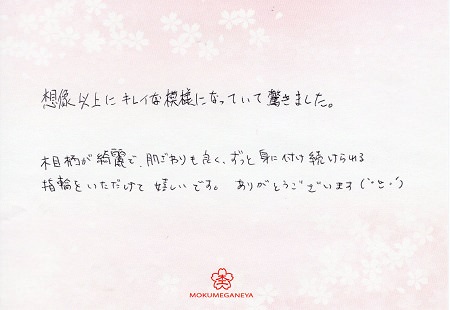 想像以上にキレイな模様になっていて驚きました。
木目柄が綺麗で、肌ざわりも良く、ずっと身に付け続けられる
指輪をいただけて嬉しいです。ありがとうございます(˙ᵕ˙)
杢
MOKUMEGANEYA